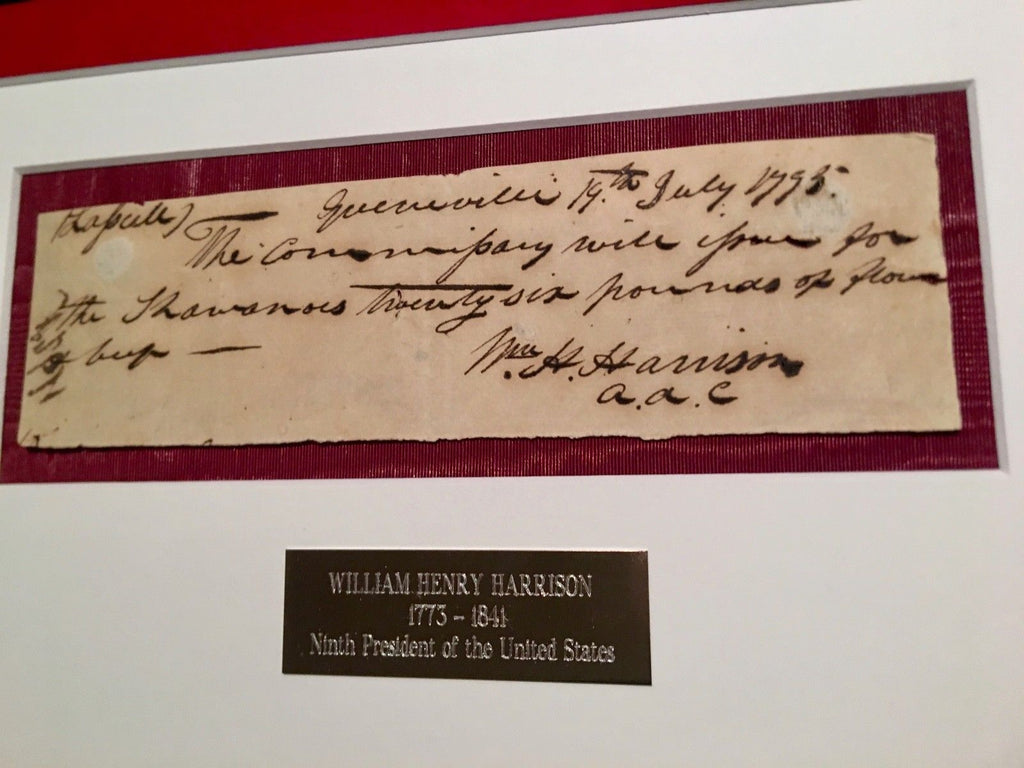 Greeneville 19.th July 1795.
The Commissary will issue for
the Shawanoes twenty six pounds of flour
& beef —
Wm. H. Harrison
a.d.C
WILLIAM HENRY HARRISON
1773 – 1841
Ninth President of the United States